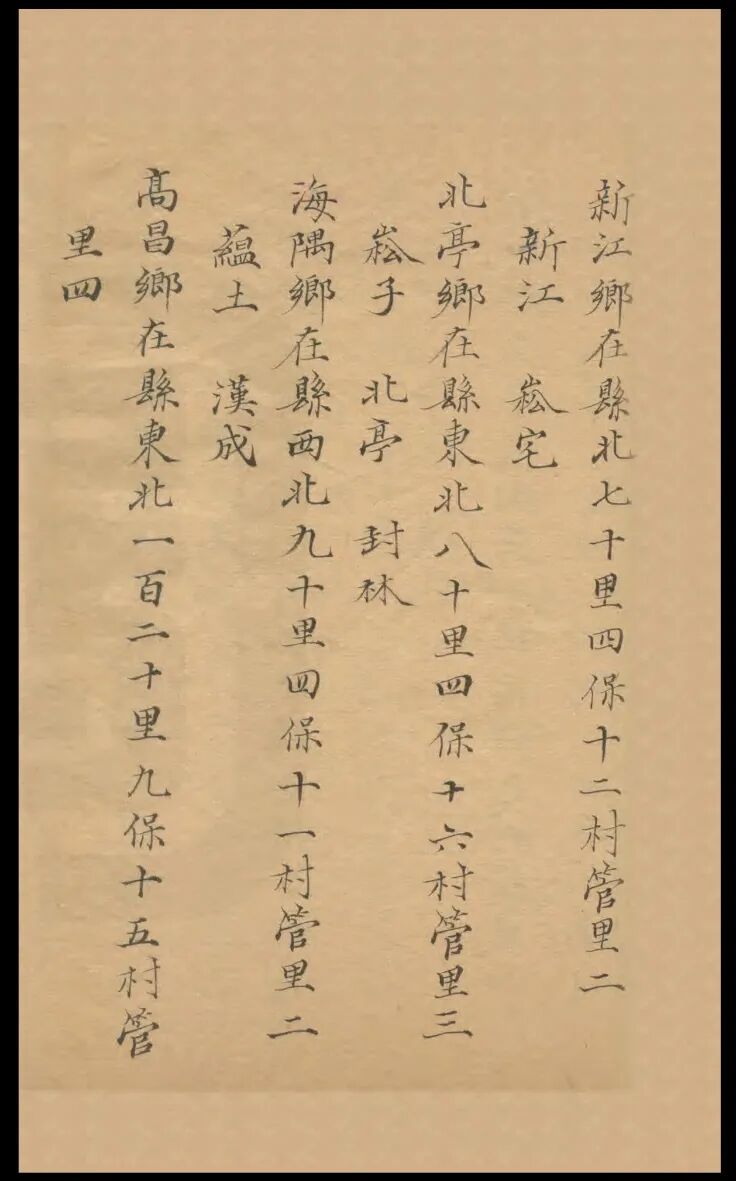 新江鄉在縣北七十里四保十二村管里二
新江 崧宅
北亭鄉在縣東北八十里四保十六村管里三
崧子 北亭 封林
海隅鄉在縣西北九十里四保十一村管里二
蘊土 漢成
髙昌鄉在縣東北一百二十里九保十五村管
里四